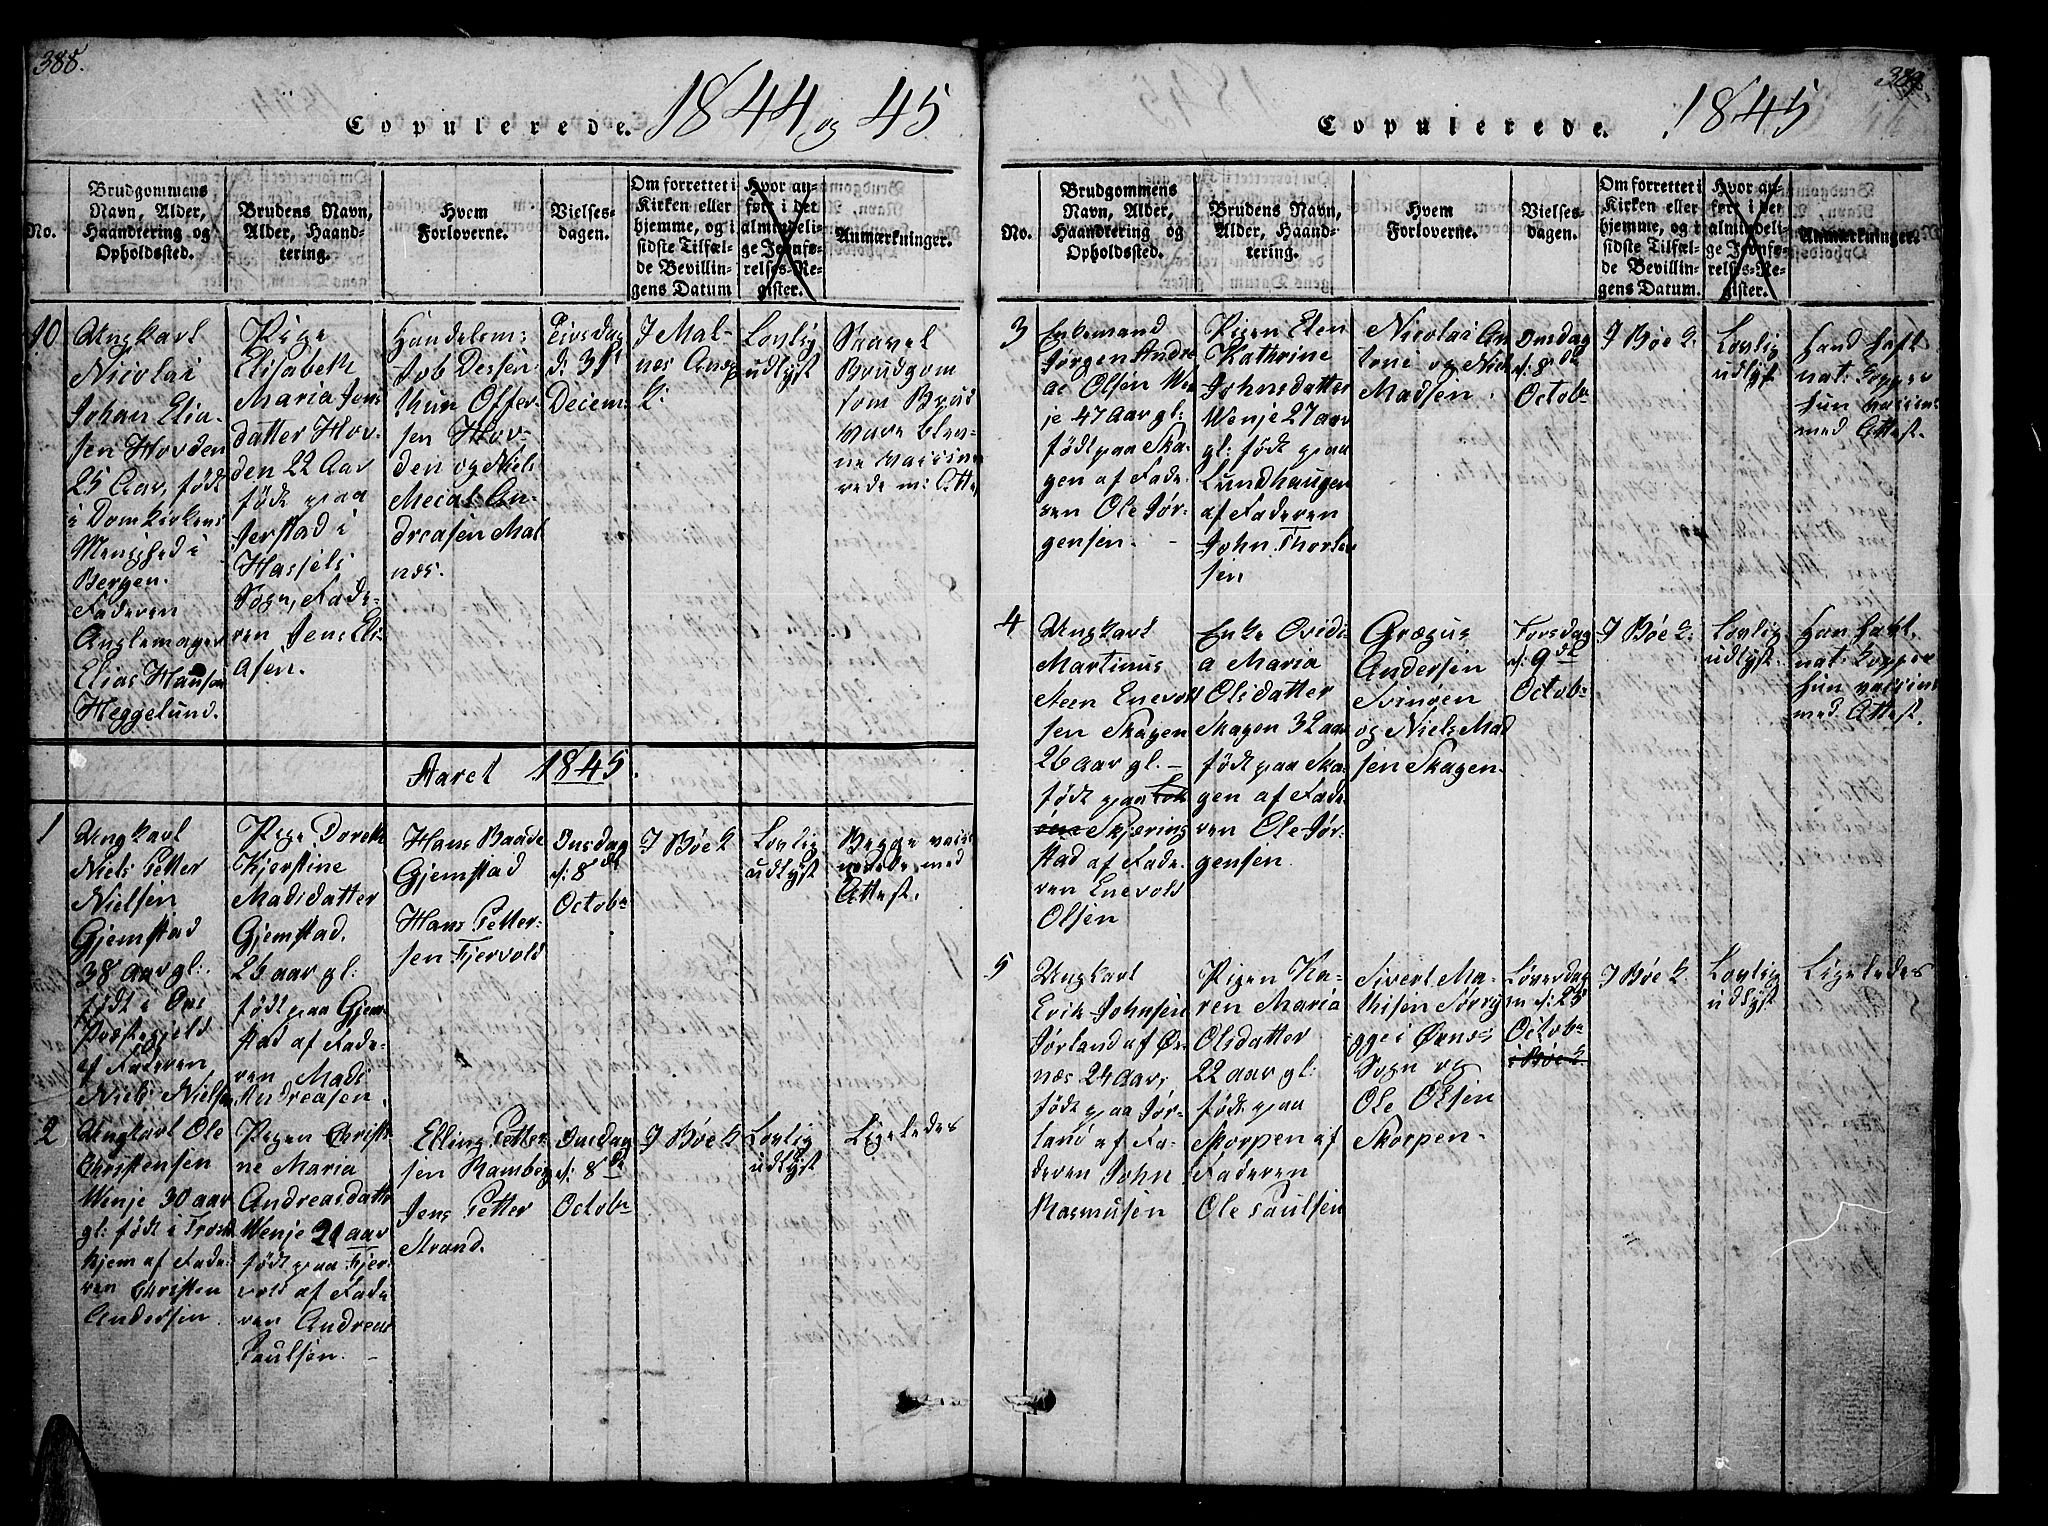 388.
Copulerede. 1844 og 45
No.
Brudgommens
Navn, Alder,
Haandtering og
Opholdssted.
Brudens Navn,
Alder, Haand-
tering.
Hvem
Forloverne.
Vielses-
dagen.
Om forrettet i
Kirken eller
hjemme, og i
sidste Tilfæl-
de Bevillin-
gens Datum
Hvor an-
ført i det
almindeli-
ge Jevnfø-
relses-Re-
gister.
Anmærkninger.
10
Ungkarl
Nicolai
Johan Elia-
sen Hovden
25 Aar, født
i Domkirkens
Menighed i
Bergen.
Faderen
Anglemager
Elias Hansen
Heggelund.
Pige
Elisabeth
Maria Jens
datter Hov-
den 22 Aar
født paa
Jerstad i
Hassels
Sogn, Fade-
ren Jens Eli-
asen.
Handelsm:
Job Dessen
thun Offer-
sen Hov-
den og Niels
Mecal: An-
dreasen Mal
næs.
Tirsdag
d: 31te
Decem:
I Mal-
næs Anex
K:
Lovlig
udlyst
Saavel
Brudgom
som Brud
vare blev-
ne vaccine
rede m: Atte
Aaret 1845.
1
Ungkarl
Niels Petter
Nielsen
Gjemstad
38 aar gl:
født i
Præstegjeld
af Faderen
Niels Nielsen
Pige Doreth
Kjerstine
Madsdatter
Gjemstad.
26 aar gl:
født paa Gjem-
stad af Fade-
ren Mads
Andreasen.
Hans Baade
Gjemstad
Hans Petter-
sen Fjervold
Onsdag
d: 8de
Octobr
I Bøe K
Lovlig
udlyst
Begge vacci
nerede med
Attest.
2
Ungkarl Ole
Christensen
Wenje 30 aar
gl: født i Trond
hjem af Fade-
ren Christen
Andersen.
Pigen Christi-
ne Maria
Andreasdatter
Wenje 21 aar
født paa Fjer-
vold af Fade
ren Andreas
Paulsen. -
Elling Petter
sen Ramberg
Jens Petter
Strand.
Onsdag
d: 8de
Octobr
I Bøe K
Lovlig
udlyst
Ligeledes
389.
Copulerede. 1845
No.
Brudgommens
Navn, Alder,
Haandtering og
Opholdssted.
Brudens Navn,
Alder, Haand-
tering.
Hvem
Forloverne.
Vielses-
dagen.
Om forrettet i
Kirken eller
hjemme, og i
sidste Tilfæl-
de Bevillin-
gens Datum.
Hvor an-
ført i det
almindeli-
ge Jevnfø-
relses-Re-
gister.
Anmærkninger.
3
Enkemand
Jørgen Andre
as Olsen Wen
je 47 Aar gl:
født paa Ska-
gen af Fade-
ren Ole Jør-
gensen.
Pigen Elen
Kathrine
Johnsdatter
Wenje 27 aar
gl: født paa
Lundhaugen
af Faderen
John Thorlei
sen
Nicolai An
toni og Niels
Madsen.
Onsdag
d: 8de
Octobr
I Bøe K.
Lovlig
udlyst
Hand haft
nat: Kopper
hun vaccine
med Attest.
4
Ungkarl
Martinus
Steen Enevold
sen Skagen
26 aar gl. -
født paa
Skjæring
stad af Fade-
ren Enevold
Olsen
Enke Ovidi
a Maria
Olsdatter
Skagen 32 aar
født paa Ska-
gen af Fade-
ren Ole Jør-
gensen.
Grægus
Andersen
Svinøen
og Niels Mad
sen Skagen.
Torsdag
d: 9de
Octobr
I Bøe K.
Lovlig
udlyst.
Han havt.
nat: Kopper
hun vaccine
med. Attest.
5
Ungkarl
Erik Johnsen
Jørland af Øx-
næs 24 aar,
født paa Jør-
land af Fa-
deren John
Rasmusen
Pigen Ka-
ren Maria
Olsdatter
22 aar gl:
født paa
Skorpen af
Faderen
Ole Paulsen
Sivert Ma-
thisen Sørry
gge i Øxnes
Sogn og
Ole Olsen
Skorpen-
Løverdag
en d: 25
Octobr
i Bøe K
I Bøe K.
Lovlig
udlyst
Ligeledes